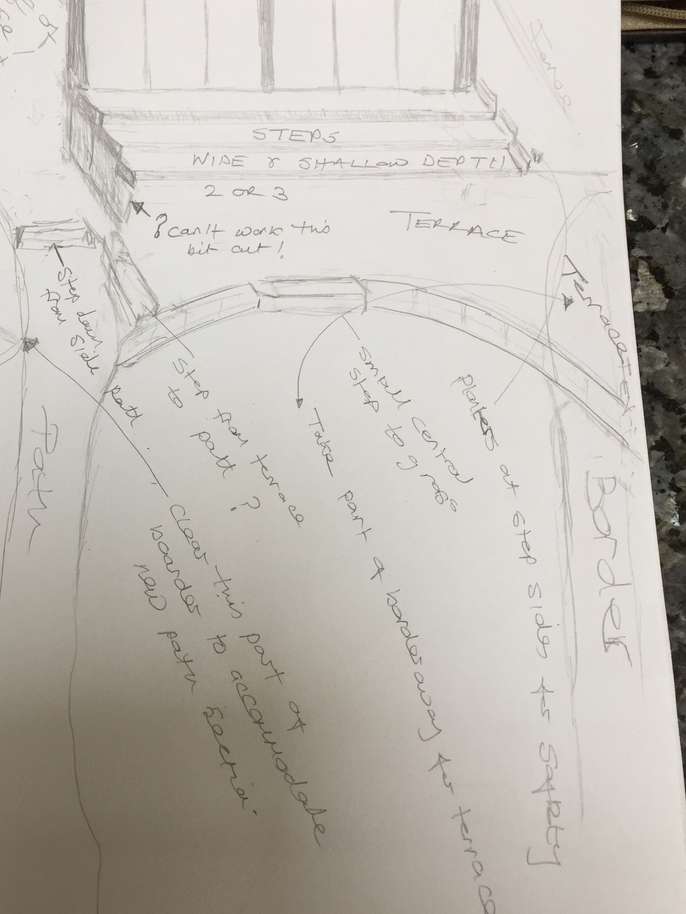 STEPS
WIDE & SHALLOW DEPTH
2 OR 3
? Can't work this
bit out!
TERRACE
Step down
from side path
Path
Step from terrace
to path ?
Clear this part of
boarder to accommodate
new path section.
small central
step to grass
Take part of border away for terrace
planters at step sides for safety
Border